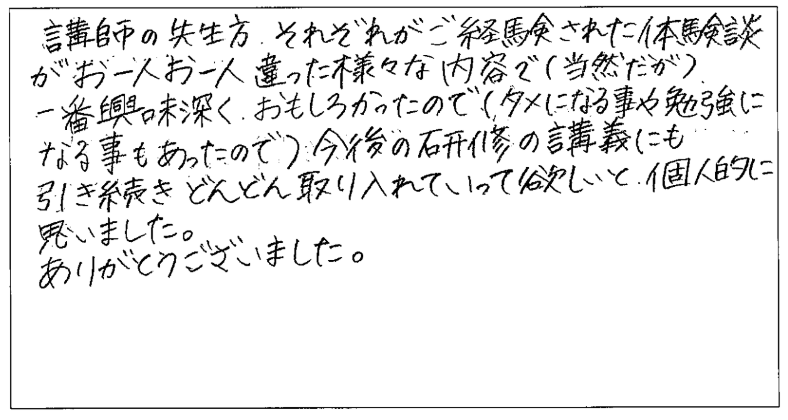 講師の先生方、それぞれがご経験された体験談
がお一人お一人違った様々な内容で(当然だが)
一番興味深く、おもしろかったので(タメになる事や勉強に
なる事もあったので)今後の研修の講義にも
引き続きどんどん取り入れていって欲しいと、個人的に
思いました。
ありがとうございました。